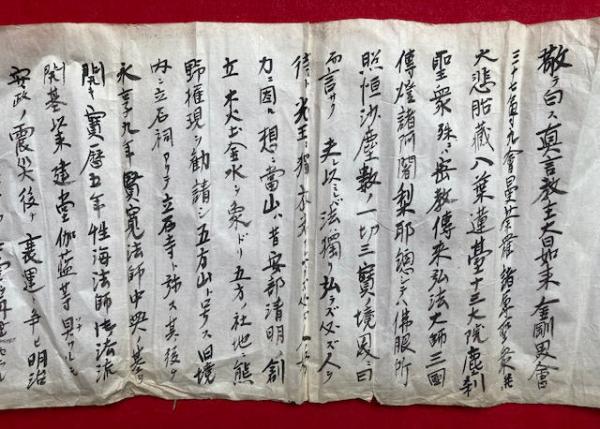 敬ッテ白ス真言教主大日如来金剛界會
三十七尊九會曼荼羅諸尊聖衆
大悲胎藏八葉蓮臺十三大院塵刹
聖衆殊ニハ密教傳来弘法大師三國
傳燈諸阿闍梨耶総シテハ佛眼所
照恒沙塵數ノ一切三寳ノ境界ニ白
而言サク夫レ以レハ法ハ獨リ弘ラズ必ズ人ヲ
待
力ニ因ル想ニ當山ハ昔安部清明ノ創
立木火土金水ヲ象ドリ五方ノ社地ニ熊
野権現ヲ勧請シ五方山ト号ス旧境
内ニ立石祠アリテ立石寺ト称ス其後チ
永享九年賢寛法師中興ノ基ヲ
開キ寳暦五年性海法師法流
開基以来建堂伽藍等具ハルモ
安政ノ震災後チ衰運ニ争ヒ明治